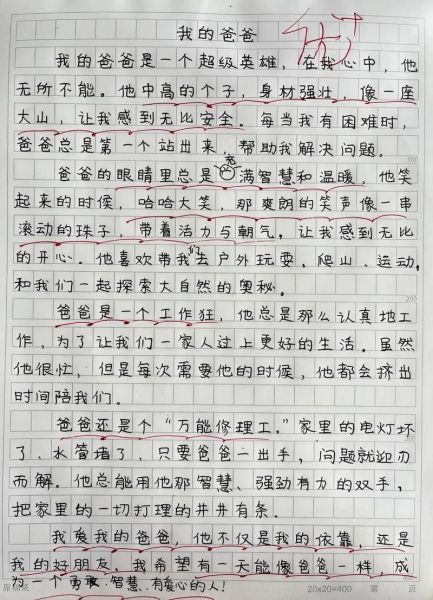 我的爸爸
优+
我的爸爸是一个超级英雄，在我心中，他
无所不能。他中高的个子，身材强壮，像一座
大山，让我感到无比安全。每当我有困难时，
爸爸总是第一个站出来，帮助我解决问题，
100
爸爸的眼睛里总是充满智慧和温暖，他笑
起来的时候，哈哈大笑，那爽朗的笑声像一串
滚动的珠子，带着活力与朝气。让我感到无比
的开心。他喜欢带我们去户外玩耍，爬山、运动，
和我们一起探索大自然的奥秘。
200
爸爸是一个工作狂，他总是那么认真地工
作，为了让我们一家人过上更好的生活。虽然
他很忙，但是每次需要他的时候，他都会挤出
时间陪我们。
爸爸还是个“万能修理工。”家里的电灯坏
300
了、水管堵了，只要爸爸一出手，问题就迎刃
而解。他总能用他那智慧、强劲有力的双手，
把家里的一切打理的井井有条。
我爱我的爸爸，他不仅是我的依靠，还是
我的好朋友。我希望有一天能像爸爸一样，成
400
为一个勇敢、智慧、有爱心的人！
20×20=400 第 页